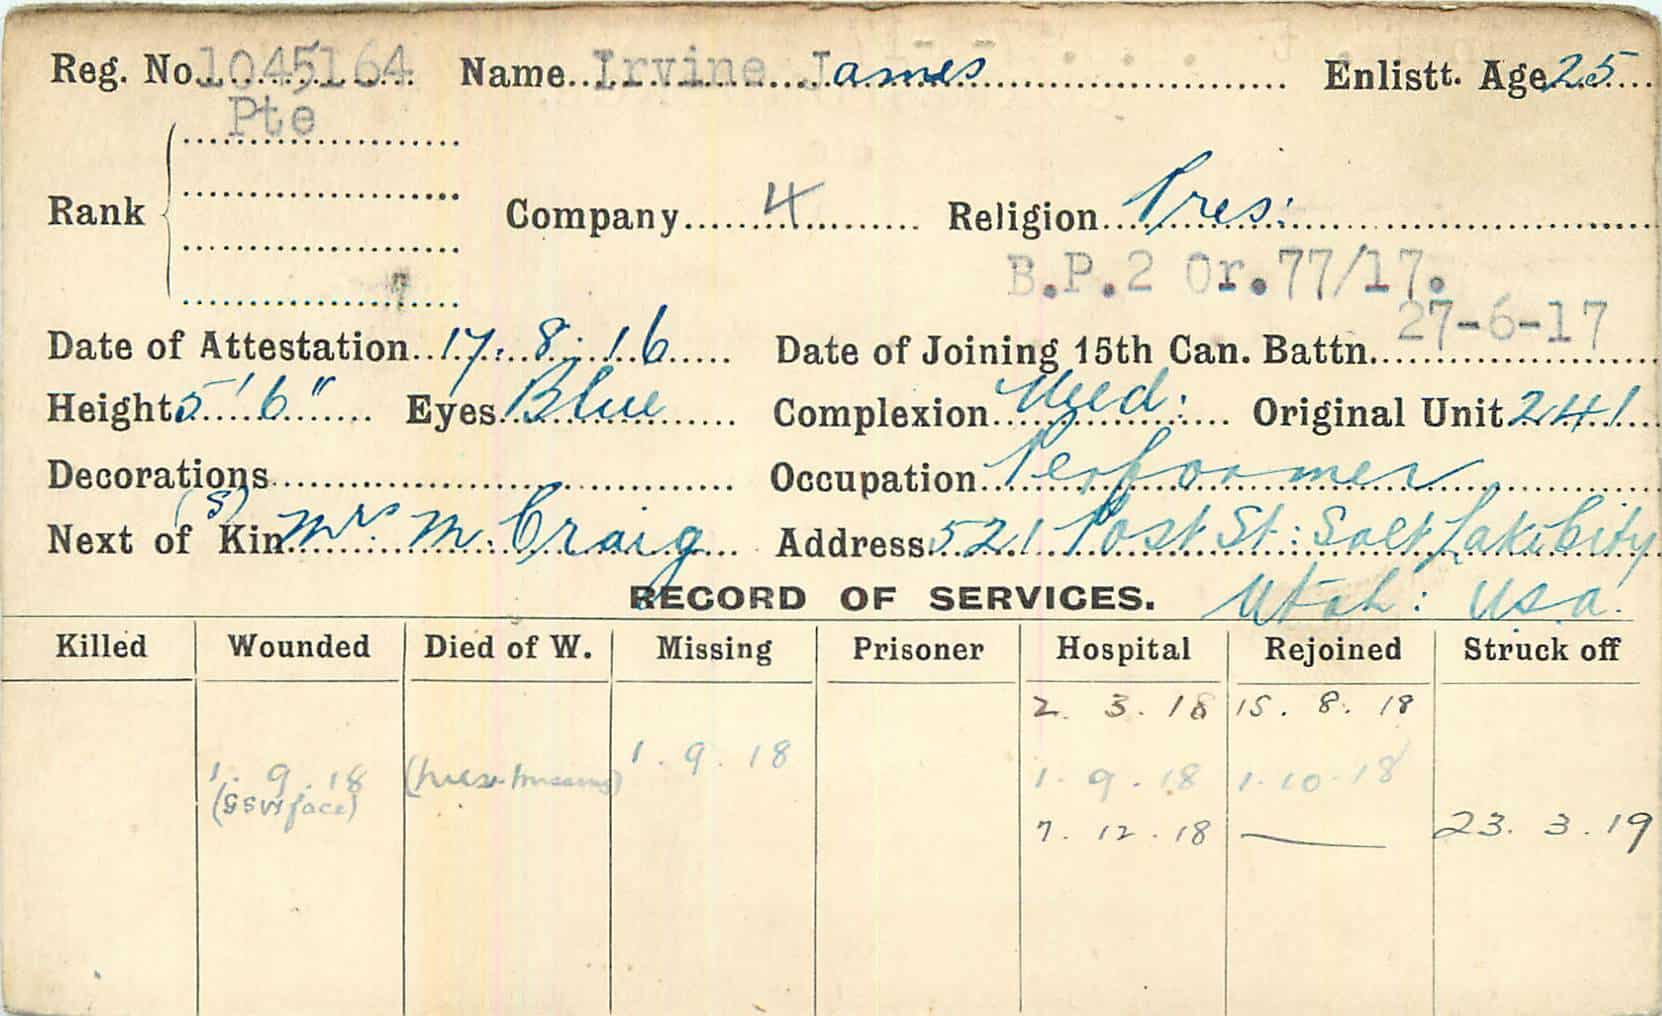 Reg. No. 1045164 Name Irvine James Enlistt. Age 25
Pte
Rank Company 4 Religion Pres:
B.P.2 Or.77/17.
7
27-6-17
Date of Attestation 17. 8. 16 Date of Joining 15th Can. Battn.
Height 5' 6" Eyes Blue Complexion Med: Original Unit 241
Decorations Occupation Performer
(S)
Next of Kin Mrs M. Craig Address 521 Post St: Salt Lake City
RECORD OF SERVICES. Utah: U.S.A.
Killed Wounded Died of W. Missing Prisoner Hospital Rejoined Struck off
2. 3. 18 15. 8. 18
1. 9. 18
1. 9. 18 missing) 1. 9. 18 1. 10. 18
(GSW face)
7. 12. 18 — 23. 3. 19